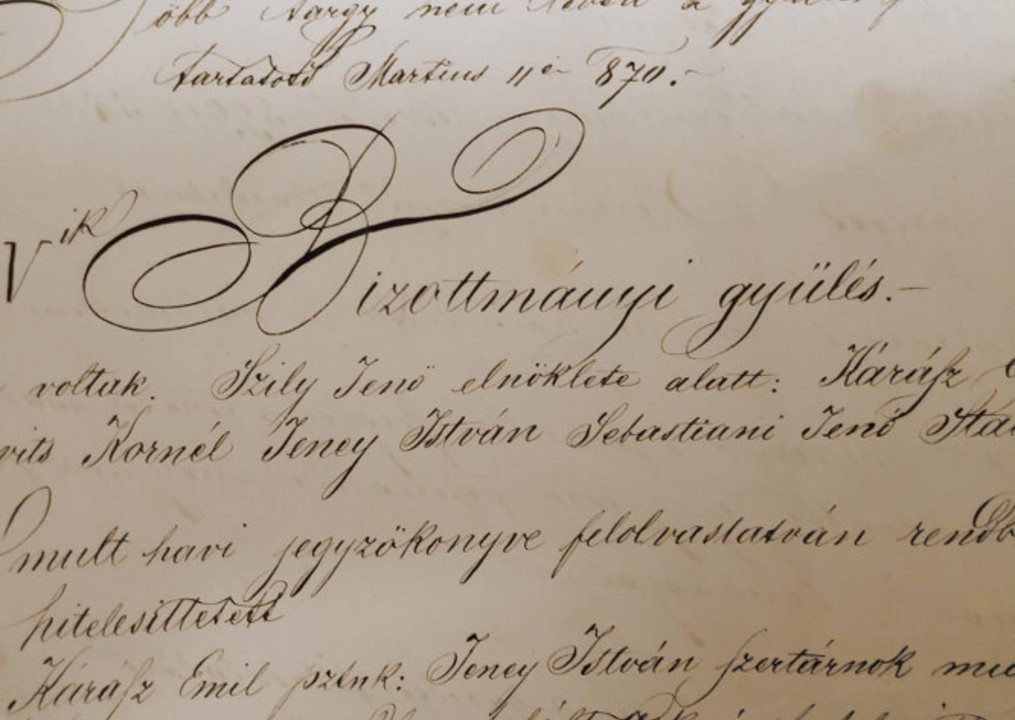 több tárgy nem lévén a
tartatott Martius 11én 870.-
Vik Bizottmányi gyülés.-
voltak. Szily Jenö elnöklete alatt: Kárász
vits Kornél Jeney István Sebastiani Jenö
mult havi jegyzökönyve felolvastatván
hitelesíttetett
Kárász Emil pztnk: Jeney István szertárnok